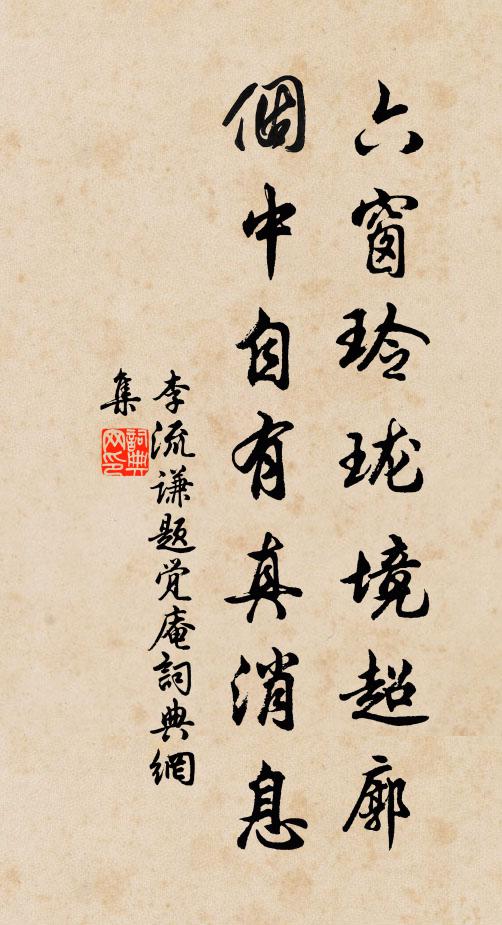 六窗玲珑境超廓
個中自有真消息
李流谦题觉庵詞典網
集
詞典網印